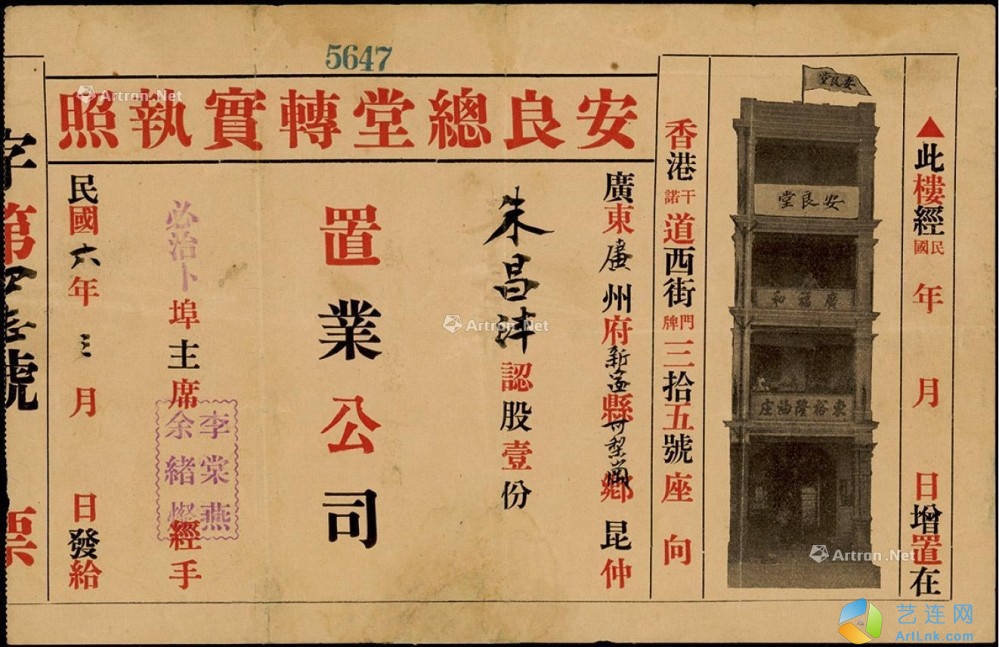 5647
安良總堂轉實執照
▲此樓經民國 年 月 日增置在
安良堂
安良堂
廣福和
東裕隆油庄
香港干諾道西街門牌三拾五號座 向
廣東廣州府新 縣 鄉 昆仲
朱昌沣認股壹份
置業公司
必治卜埠主席 經手
李棠燕
余緒燦
民國六年三月 日發給
字第 號 票
Artron.Net
Artron.Net
Artron.Net
艺连网
ArtLnk.com